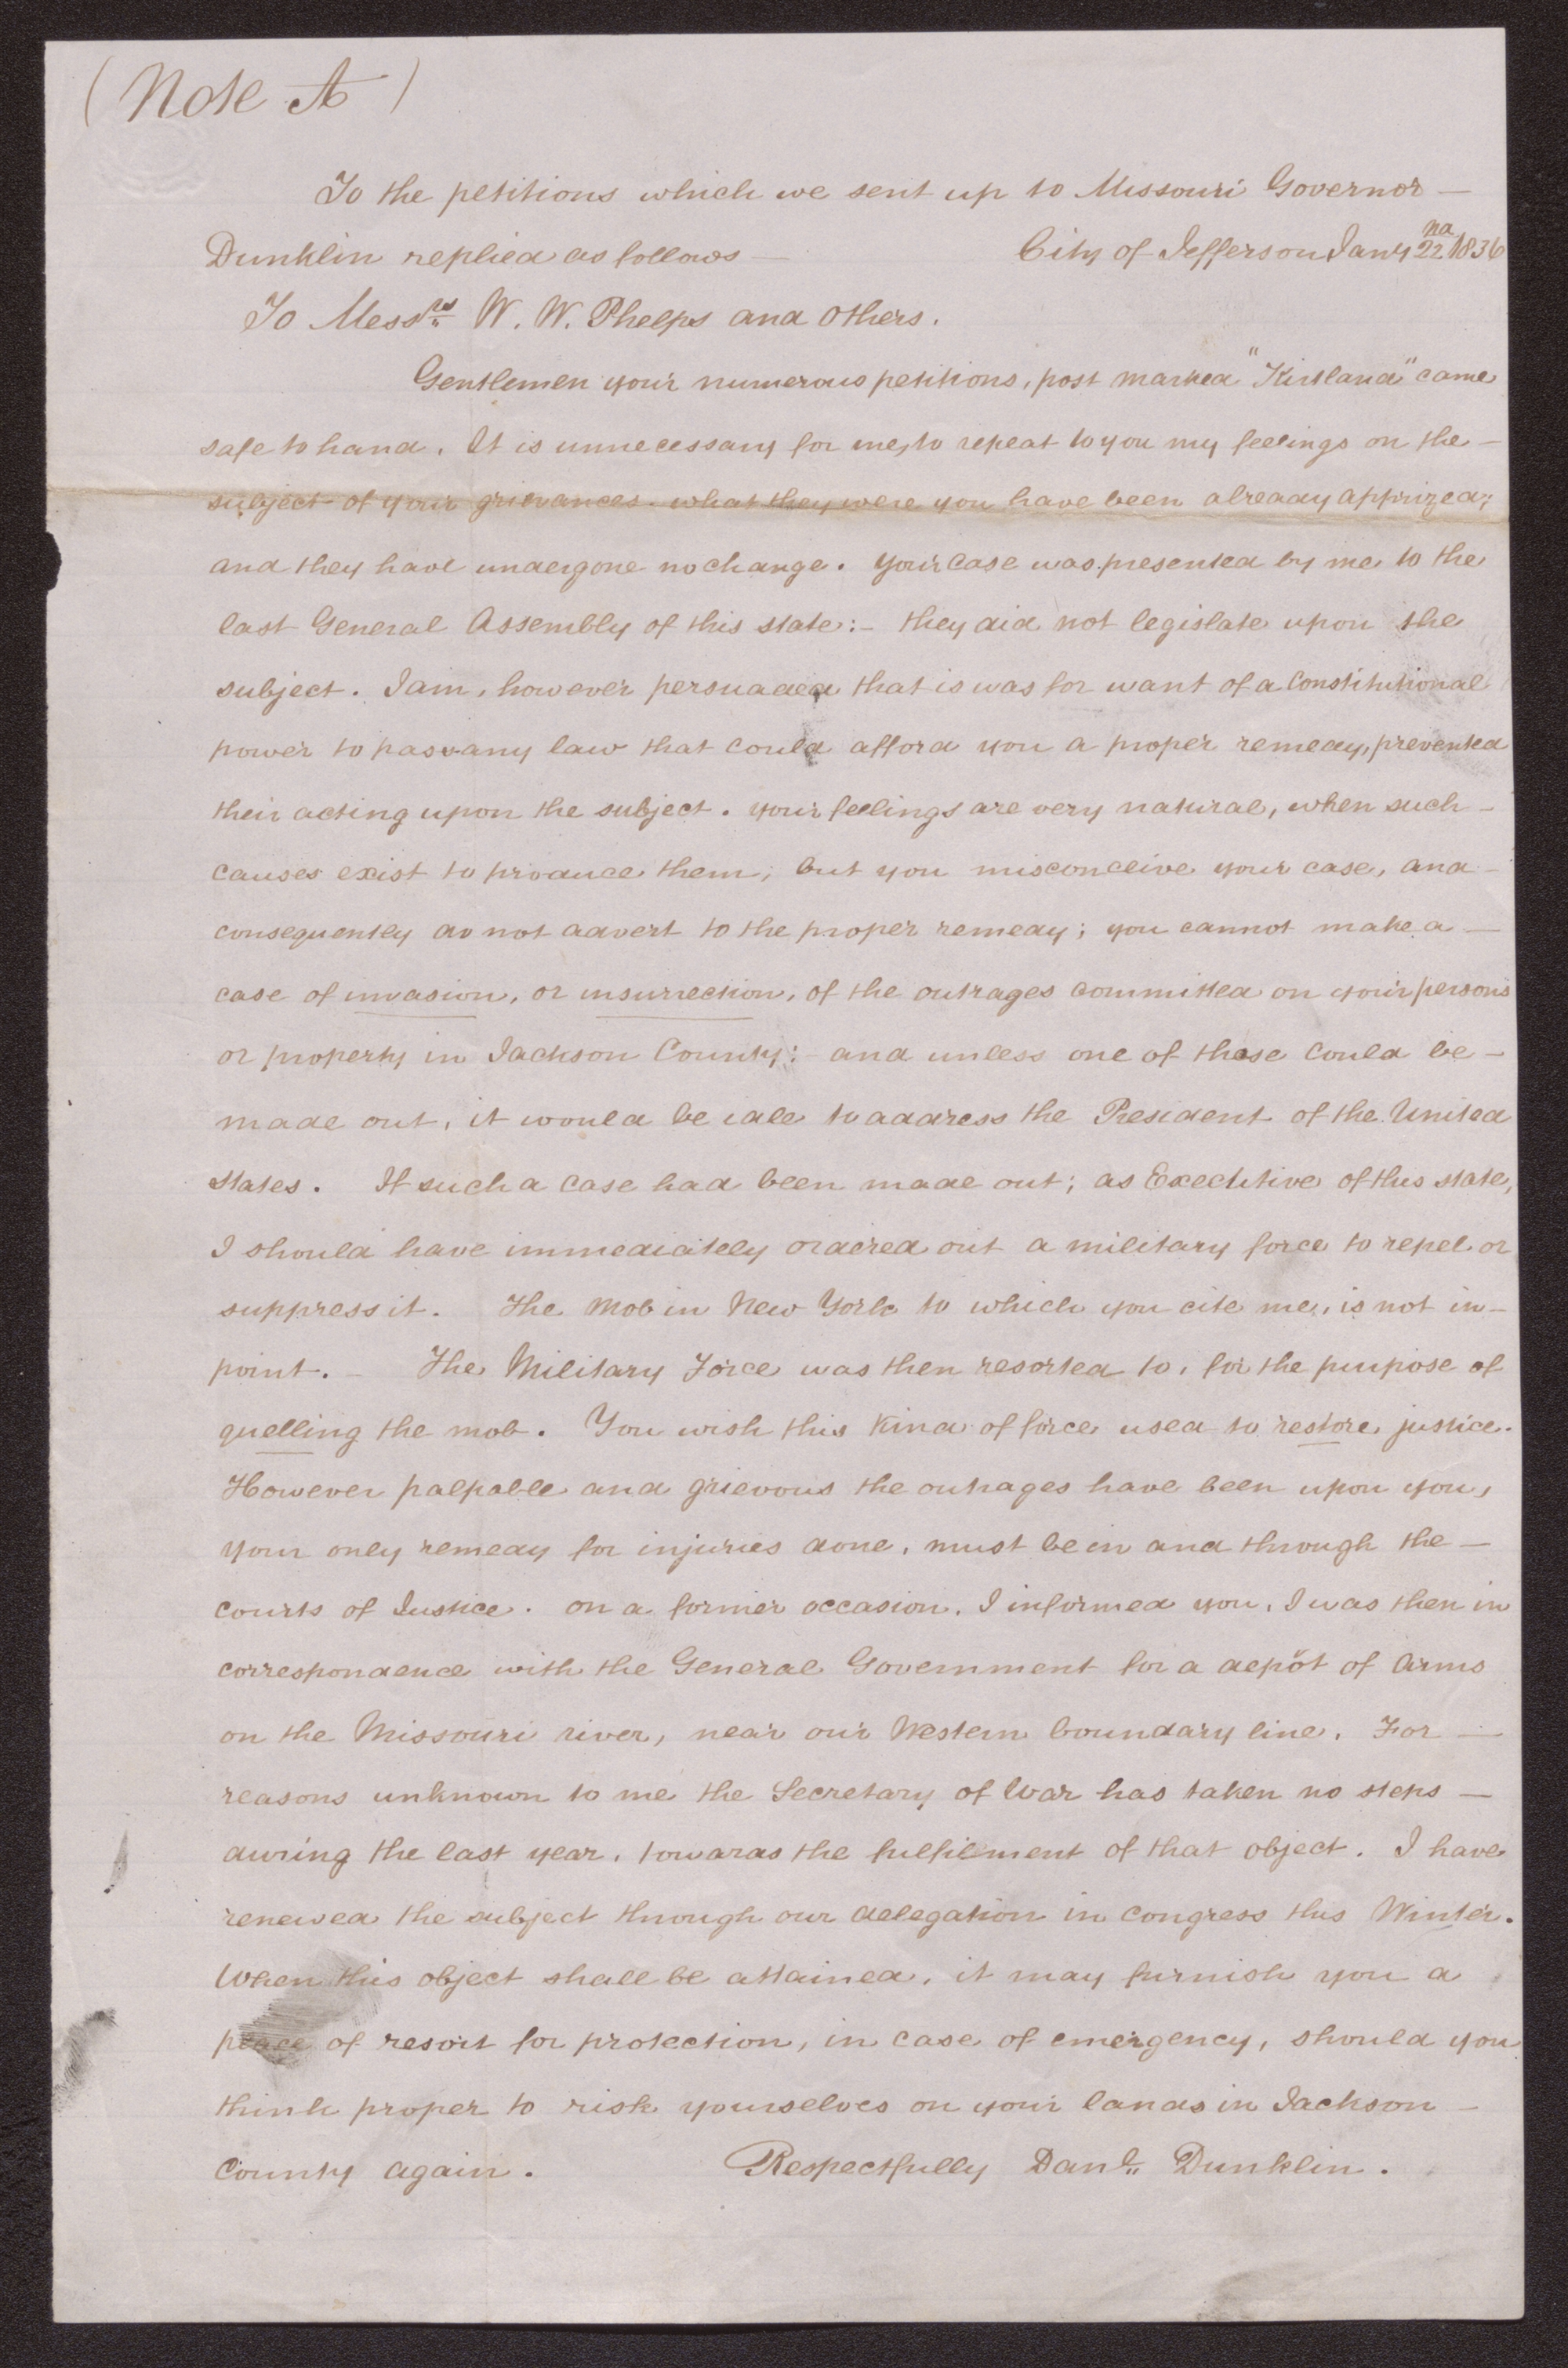 (Note A)
To the petitions which we sent up to Missouri Governor —
Dunklin replied as follows — City of Jefferson Jany 22nd 1836
To Messrs W. W. Phelps and others.
Gentlemen your numerous petitions, post marked "Kirtland" came
safe to hand. It is unnecessary for me, to repeat to you my feelings on the —
subject of your grievances. what they were you have been already apprized;
and they have undergone no change. your case was presented by me to the
last General Assembly of this state:- they did not legislate upon the
subject. I am, however persuaded that is was for want of a Constitutional
power to pass any law that could afford you a proper remedy, prevented
their acting upon the subject. your feelings are very natural, when such —
causes exist to produce them; but you misconceive your case, and —
consequently do not advert to the proper remedy; you cannot make a —
case of invasion, or insurrection, of the outrages committed on your persons
or property in Jackson County: and unless one of these could be —
made out, it would be idle to address the President of the United
states. If such a case had been made out; as Executive of this state,
I should have immediately ordered out a military force to repel or
suppress it. The mob in New York to which you cite me, is not in —
point. — The Military Force was then resorted to, for the purpose of
quelling the mob. You wish this kind of force used to restore justice.
However palpable and grievous the outrages have been upon you,
your only remedy for injuries done, must be in and through the —
courts of Justice. on a former occasion, I informed you, I was then in
correspondence with the General Government for a depôt of arms
on the Missouri river, near our Western boundary line. For —
reasons unknown to me the Secretary of War has taken no steps —
during the last year, towards the fulfilment of that object. I have
renewed the subject through our delegation in congress this Winter.
When this object shall be attained, it may furnish you a
place of resort for protection, in case of emergency, should you
think proper to risk yourselves on your lands in Jackson —
County again. Respectfully Danl. Dunklin.